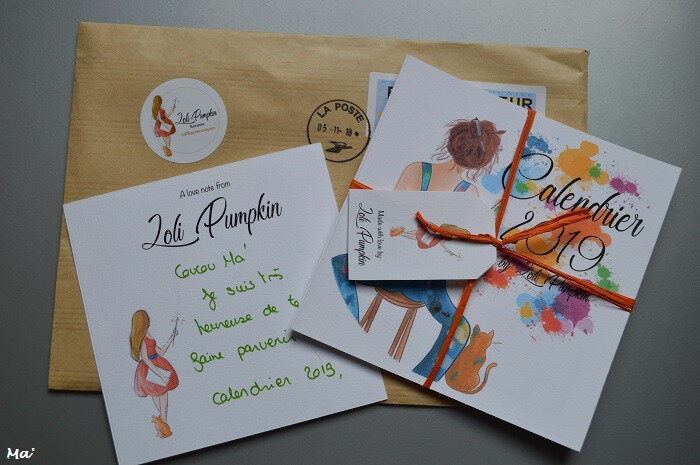 Loli Pumpkin
LA POSTE
05-11-18
EUR
A love note from
Loli Pumpkin
Coucou Ma'
Je suis très
heureuse de te
faire parvenir
calendrier 2019,
Made with love by
Loli Pumpkin
Calendrier
2019
by Loli Pumpkin
Ma'